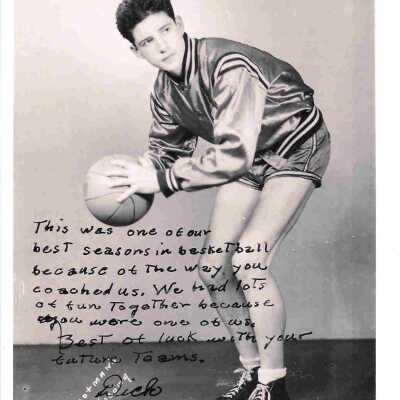 This was one of our
best seasons in basketball
because of the way you
coached us. We had lots
of fun together because
you were one of us.
Best of luck with your
future Teams.
Dick